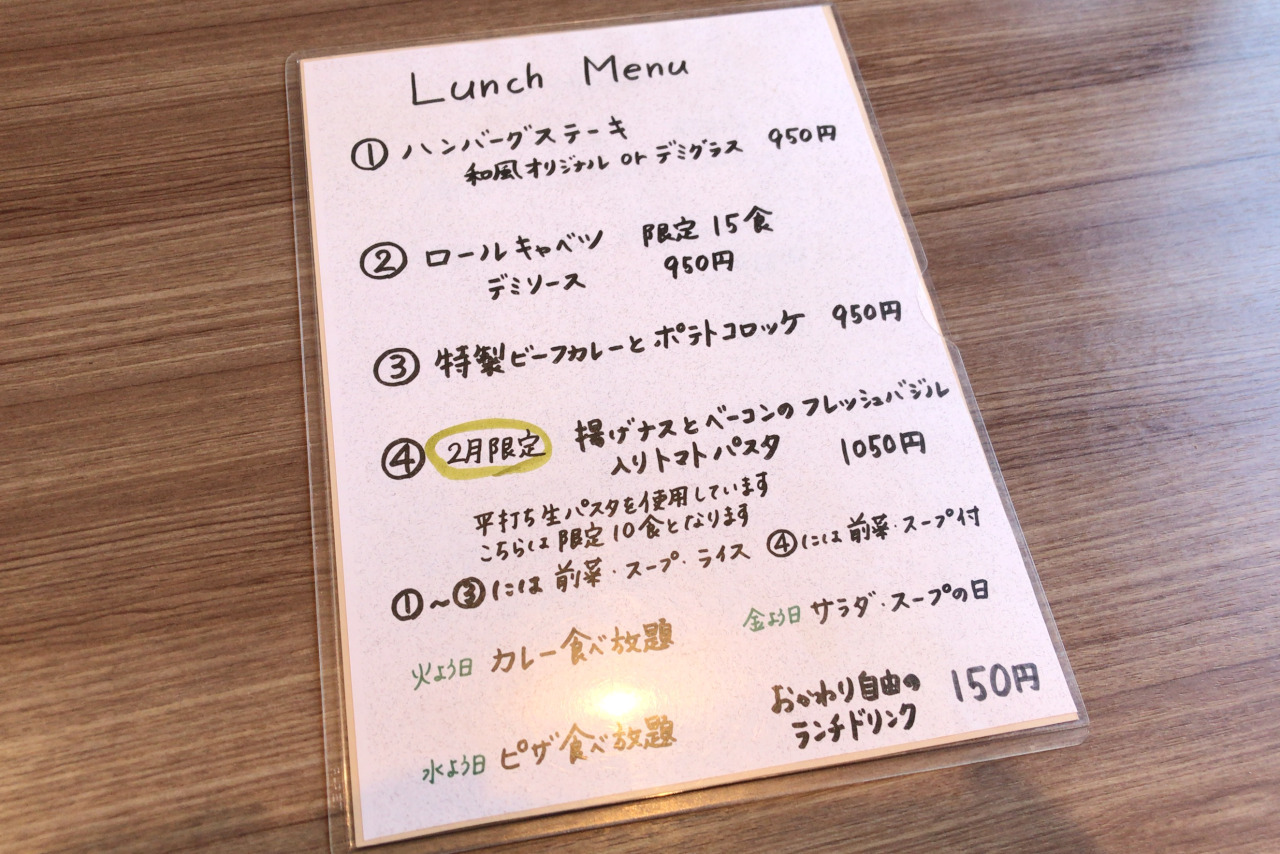 Lunch Menu
① ハンバーグステーキ
和風オリジナル or デミグラス 950円
② ロールキャベツ 限定 15食
デミソース 950円
③ 特製ビーフカレーとポテトコロッケ 950円
④ 2月限定 揚げナスとベーコンのフレッシュバジル
入りトマトパスタ 1050円
平打ち生パスタを使用しています
こちらは限定10食となります
①~③には前菜・スープ・ライス ④には前菜・スープ付
火よう日 カレー食べ放題 金よう日 サラダ・スープの日
水よう日 ピザ食べ放題
おかわり自由の
ランチドリンク 150円